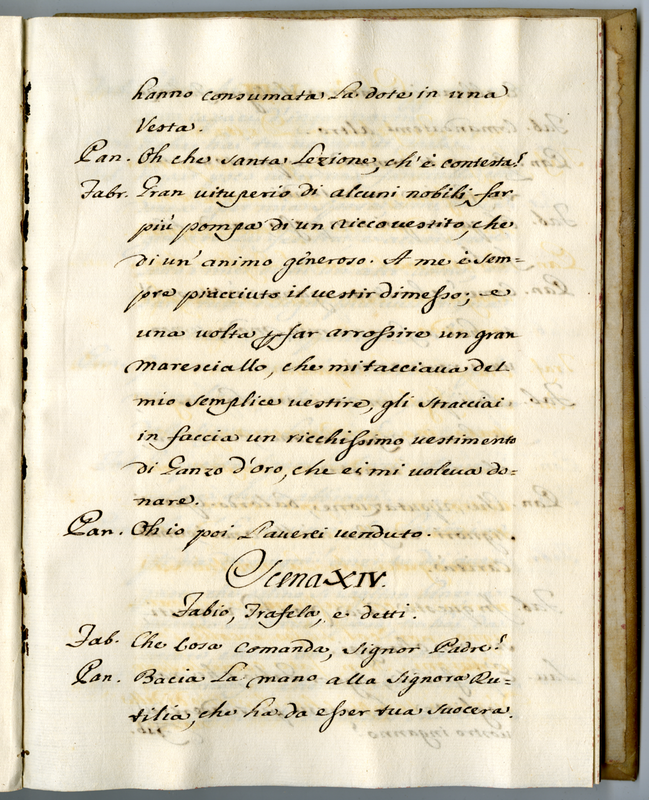 hanno consumata la dote in una
Vesta.
Pan. Oh che santa Lezione, ch'è cotesta!
Fabr. Gran vituperio di alcuni nobili, far
più pompa di un ricco vestito, che
di un' animo generoso. A me è sem=
pre piacciuto il vestir dimesso; e
una volta p far arrossire un gran
maresciallo, che mi tacciava del
mio semplice vestire, gli stracciai
in faccia un ricchissimo vestimento
di Ganzo d'oro, che ei mi voleva do=
nare.
Pan. Oh io poi l'averei venduto.
Scena XIV.
Fabio, Trafela, e detti.
Fab. Che cosa comanda, Signor Padre?
Pan. Bacia la mano alla Signora Ru=
tilia, che ha da esser tua suocera.